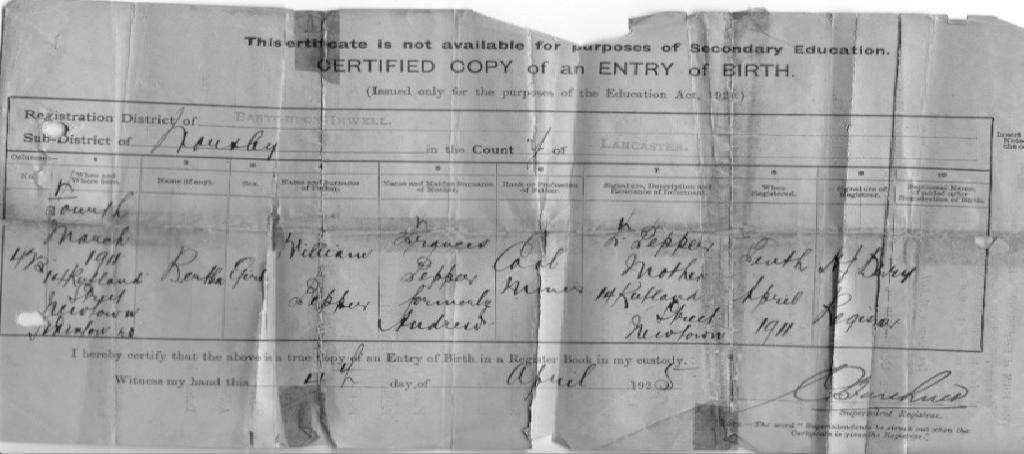 This certificate is not available for purposes of Secondary Education.
CERTIFIED COPY of an ENTRY of BIRTH.
(Issued only for the purposes of the Education Act, 192
Registration District of BARTON-UPON-IRWELL.
Sub-District of in the County of LANCASTER.
Columns:— 1 2 3 4 5 6 7 8 9 10
No. When and Where born. Name (if any). Sex. Name and Surname of Father. Name and Maiden Surname of Mother. Rank or Profession of Father. Signature, Description and Residence of Informant. When Registered. Signature of Registrar. Baptismal Name, if added after Registration of Birth.
Fourth
March William Frances Coal F Pepper Tenth
1911 Bertha Girl Pepper Miner Mother April
14 Rutland Pepper formerly 14 Rutland 1911 Registrar
Street Andrew Street
Newtown Newtown
I hereby certify that the above is a true Copy of an Entry of Birth in a Register Book in my custody.
Witness my hand this day of April 192
Superintendent Registrar.
NOTE.—The word "Superintendent" to be struck out when the
Certificate is given the Registrar."